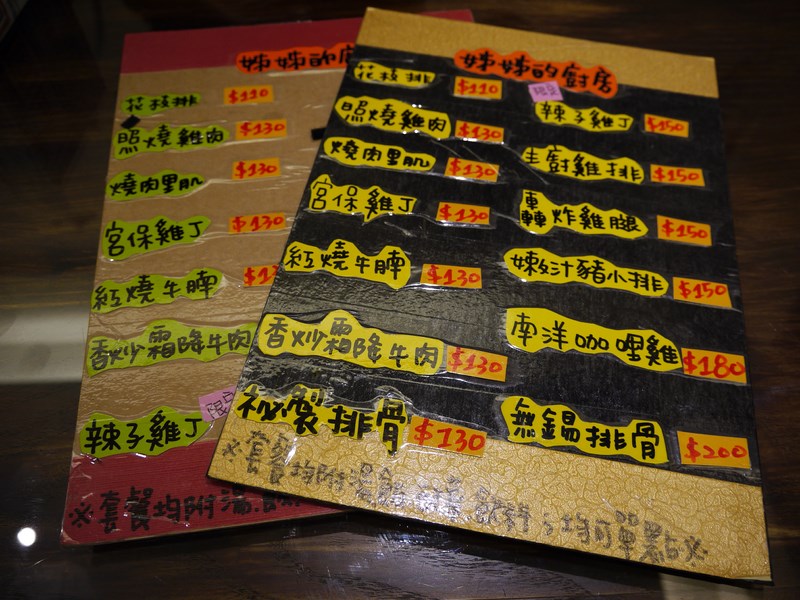 姊姊的廚房
花枝排 $110
照燒雞肉 $130
燒肉里肌 $130
宮保雞丁 $130
紅燒牛腩 $130
香炒霜降牛肉 $130
祕製排骨 $130
限量
辣子雞丁 $150
主廚雞排 $150
轟炸雞腿 $150
姊ㄉ汁豬小排 $150
南洋咖哩雞 $180
無錫排骨 $200
※套餐均附湯、
飲料；均可單點※
姊姊的
花枝排 $110
照燒雞肉 $130
燒肉里肌 $130
宮保雞丁 $130
紅燒牛腩
香炒霜降牛肉
限
辣子雞丁
※套餐均附湯、